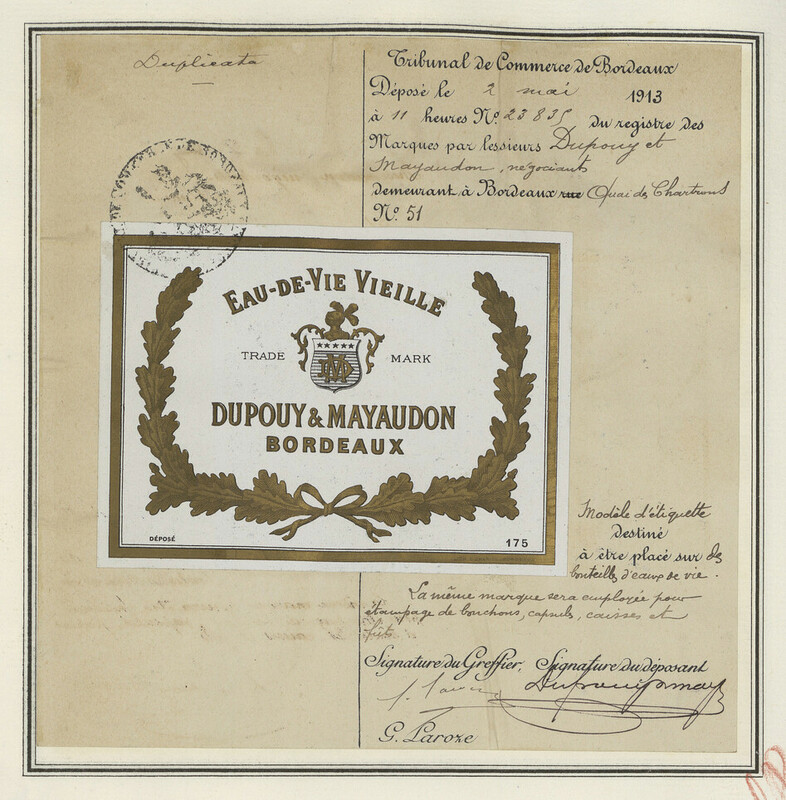 Duplicata
Tribunal de Commerce de Bordeaux
Déposé le 2 mai 1913
à 11 heures No. 23835 du registre des
Marques par lessieurs Dupouy et
Mayaudon, négociants
demeurant à Bordeaux rue Quai des Chartrons
No. 51
EAU-DE-VIE VIEILLE
TRADE MARK
DM
DUPOUY & MAYAUDON
BORDEAUX
DÉPOSÉ 175
Modèle d'étiquette
destiné
à être placé sur des
bouteilles d'eaux de vie.
La même marque sera employée pour
étampage de bouchons, capsules, caisses et
fûts.
Signature du Greffier, Signature du déposant
G. Laroze